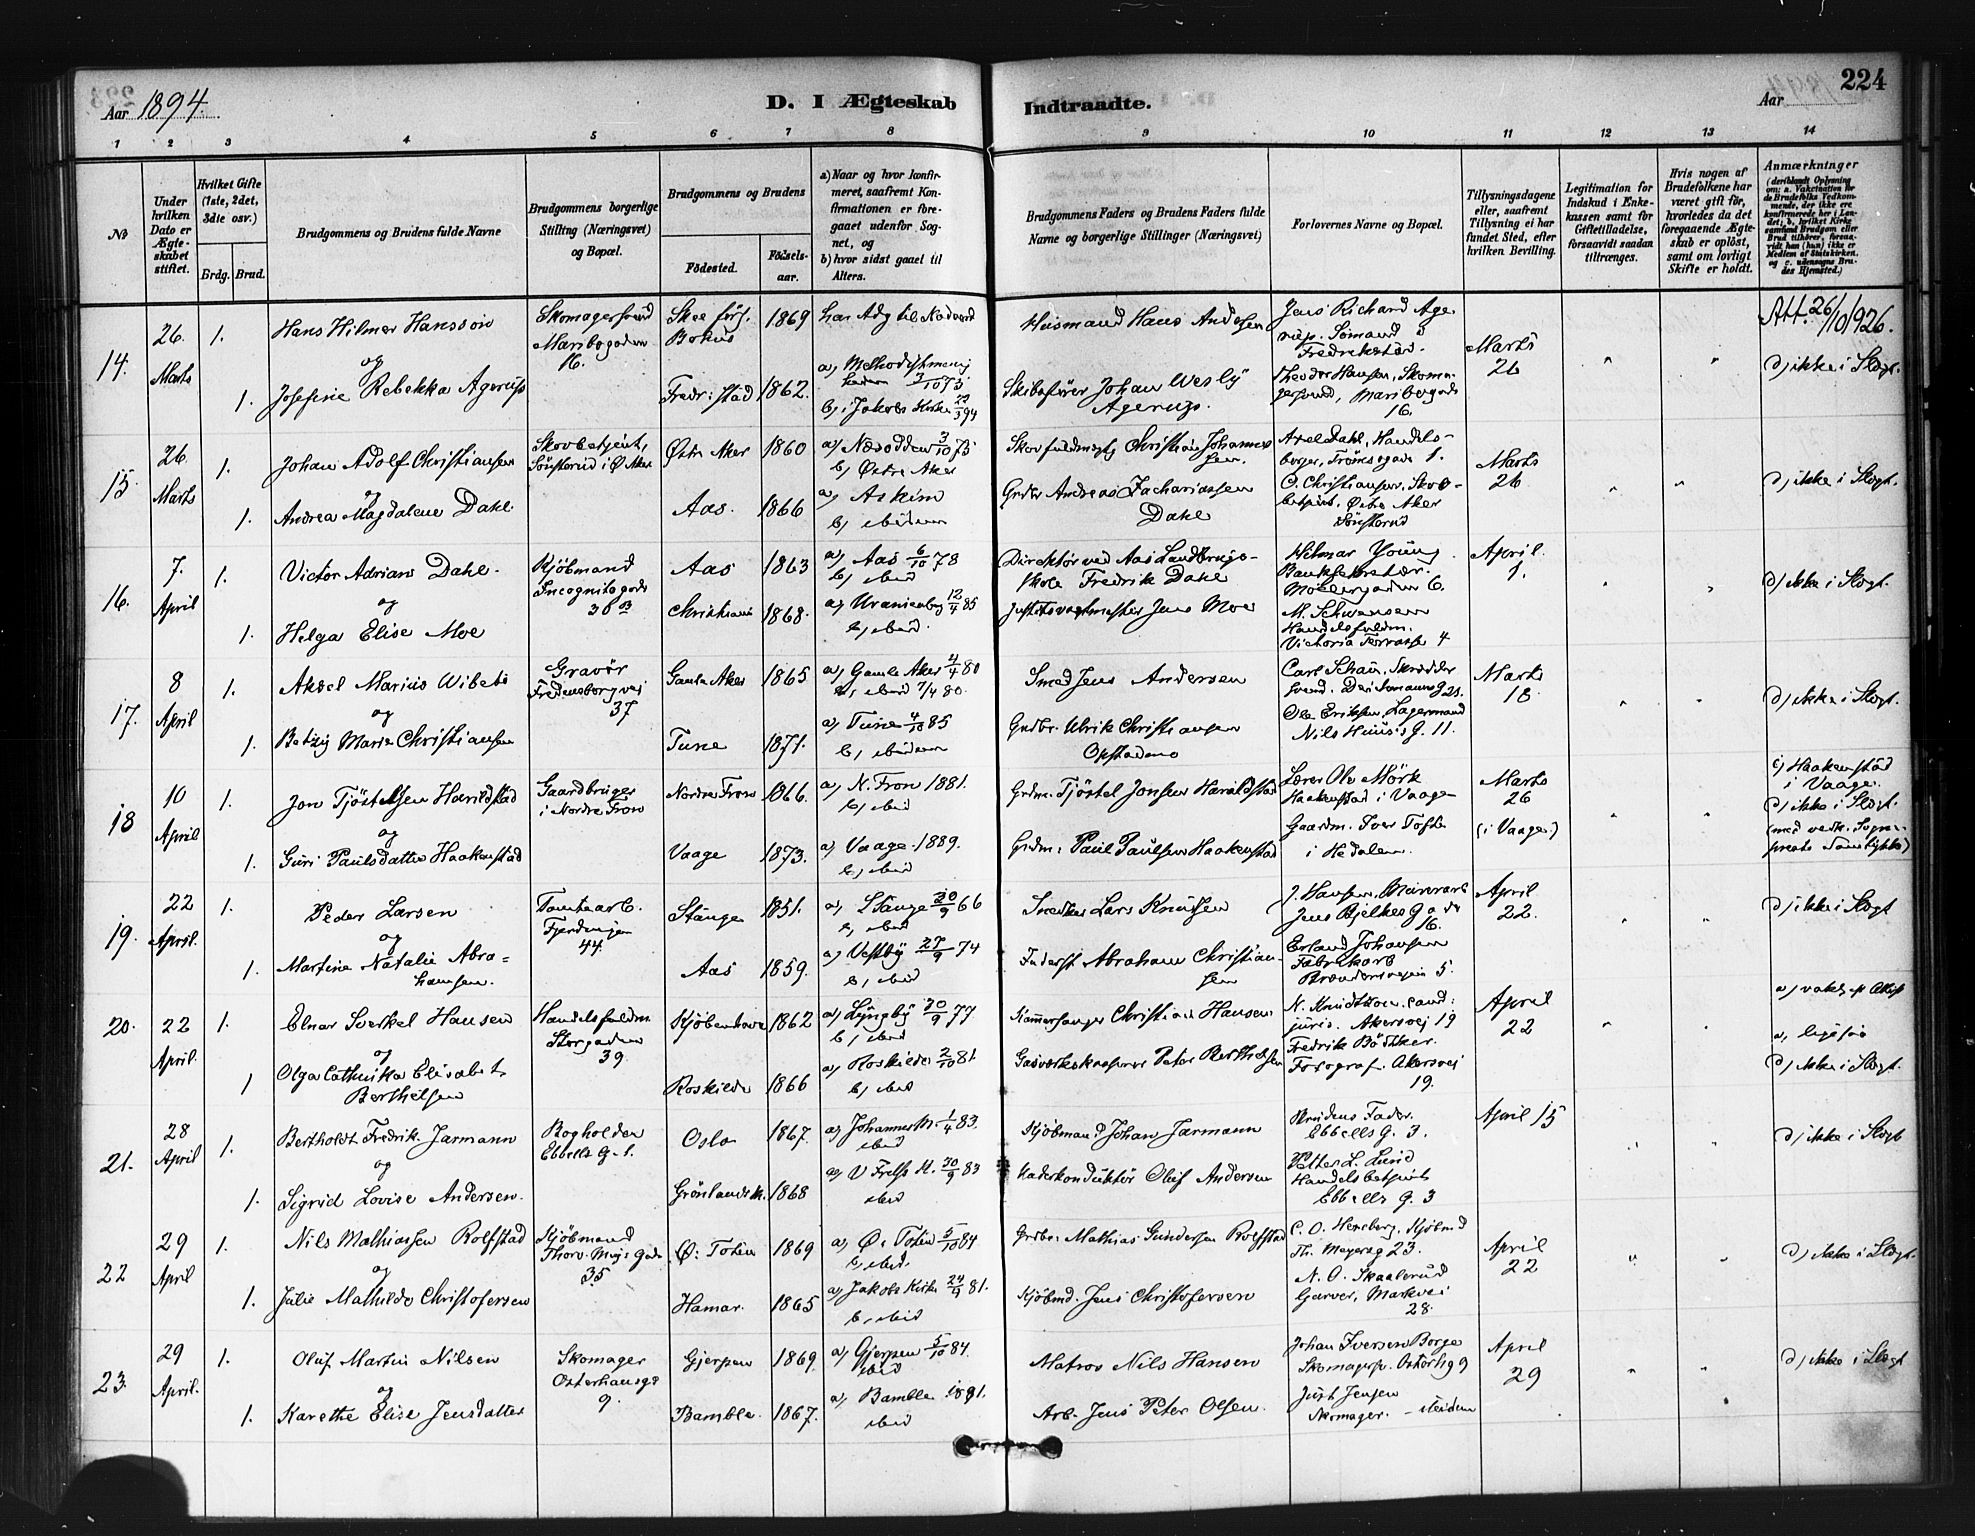 Aar 1894.
D. I Ægteskab Indtraadte.
Aar
224
1 2 3 4 5 6 7 8 9 10 11 12 13 14
No
Under hvilken Dato er Ægteskabet stiftet.
Hvilket Gifte (1ste, 2det, 3die osv.)
Brdg. Brud.
Brudgommens og Brudens fulde Navne
Brudgommens borgerlige Stilling (Næringsvei) og Bopæl.
Brudgommens og Brudens
Födested. Födsels-aar.
a) Naar og hvor konfirmeret, saafremt Konfirmationen er foregaaet udenfor Sognet, og
b) hvor sidst gaaet til Alters.
Brudgommens Faders og Brudens Faders fulde Navne og borgerlige Stillinger (Næringsvei)
Forlovernes Navne og Bopæl.
Tillysningsdagene eller, saafremt Tillysning ei har fundet Sted, efter hvilken Bevilling.
Legitimation for Indskud i Enkekassen samt for Giftetilladelse, forsaavidt saadan tiltrænges.
Hvis nogen af Brudefolkene har været gift för, hvorledes da det foregaaende Ægteskab er oplöst, samt om lovligt Skifte er holdt.
Anmærkninger
14. 26. Marts 1. Hans Hilmer Hanssön
Skomagersvend Maribogaden 16.
1869
Husmand Hans Andersen
Jens Richard Agerup. Sömand i Fredrikstad.
Marts 26
Att. 26/10 1926.
og
1. Josefine Rebekka Agerup
Fredr:stad 1862.
a) Methodistmenig 3/10 73
b) i Jakobs Kirke 23/3 94
Skibsförer Johan Wesly Agerup.
Theodor Hansen, Skomagersvend, Maribogade 16.
d) ikke i Slægt.
15. 26 Marts 1. Johan Adolf Christiansen
Skovbetjent, Sönsterud i Ø. Aker
Østre Aker 1860
a) Næsodden 3/10 75
b) Østre Aker
Skovfuldmægtig Christian Johannessen.
Axel Dahl, Handelsborger, Tromsogade 1.
Marts 26
og
1. Andrea Magdalene Dahl
Aas. 1866
a) Askim
b) ibidem
Grdbr Andreas Zachariassen Dahl
O. Christiansen, Skovbetjent, Østre Aker Sönsterud
d) ikke i Slægt.
16. 7. April 1. Victor Adrian Dahl.
Kjöbmand Incognitogade 30 B
Aas 1863
a) Aas 6/10 78
b) ibid
Direktör ved Aas Landbrugsskole Fredrik Dahl
Hilmar Young Banksekretær. Möllergaden 6.
April 1.
og
1. Helga Elise Moe
Christiania 1868.
a) Uranienborg 12/4 85
b) ibid.
Justitsvagtmester Jens Moe
M. Schwensen Handelsfuldm. Victoria Terrasse 4
d) ikke i Slægt.
17. 8 April 1. Aksel Marius Wibeto
Gravör Fredensborgvei 37
Gamle Aker 1865
a) Gamle Aker 4/4 80
b) ibid 7/4 80.
Smed Jens Andersen
Marts 18
og
1. Betzy Marie Christiansen
Tune 1871.
a) Tune 4/10 85
b) ibidem
Grdbr. Ulrik Christiansen Opstadmo
Ole Eriksen, Lagermand Nils Huus's G. 11.
d) ikke i Slægt.
18 10 April 1. Jon Tjöstelsen Harildstad
Gaardbruger i Nordre Fron
Nordre Fron 1866.
a) N. Fron 1881.
b) ibid
Grdm. Tjöstel Jonsen Harildstad
Lærer Ole Mörk Haakenstad i Vaage
Marts 26 (i Vaage)
c) Haakenstad i Vaage.
og
1. Guri Paulsdatter Haakenstad
Vaage 1873.
a) Vaage 1889.
b) ibid
Grdm. Paul Paulsen Haakenstad
Gaardm. Iver Tofte i Hedalen.
d) ikke i Slægt.
(med vedk. Sogneprests Samtykke)
19. 22 April. 1. Peder Larsen
Tomtearb. Fjerdingen 44.
Stange 1851.
a) Stange 30/9 66
b) ibid
Lars Knudsen
J. Hansen, Murerarb Jens Bjelkes Gade 16.
April 22.
d) ikke i Slægt
og
1. Martine Natalie Abrahamsen.
Aas 1859.
a) Vestby 27/9 74
b) ibid
Inderst Abraham Christiansen
Erland Johansen Fabrikarb 5.
20. 22 April. 1. Einar Sverkel Hansen
Handelsfuldm Storgaden 39.
Kjöbenhavn 1862
a) Lyngby 30/9 77
b) ibid
Kammersanger Christian Hansen
N. Knudtzon, cand: juris. Akersvei 19
April 22
a) vakc. ip attest
og
1 Olga Cathinka Elisabet Berthelsen
Roskilde 1866
a) Roskilde 2/10 81.
b) ibid
Gasværkskasserer Peter Berthelsen
Fredrik Bödtker. Fotograf. Akersvei 19.
a) ligesaa
d) ikke i Slægt.
21. 28 April 1. Bertholdt Fredrik Jarmann
Bogholder Ebbells G. 1.
Oslo 1867.
a) Johannes M. 1/4 83.
ibid
Kjöbmand Johan Jarmann
Brudens Fader. Ebbells G. 3.
April 15
d) ikke i Slægt
og
1. Sigrid Lovise Andersen.
Grönlands K. 1868
a) V Frels K. 30/9 83
ibid
Olaf Andersen
Petter L. Lund Handelsbetjent Ebbells G. 3
22 29 April 1. Nils Mathiassen Rolfstad
Kjöbmand Thorv. Meyers Gade 35
Ø. Toten 1869
a) Ø. Toten 5/10 84
b) ibid.
Grdbr. Mathias Gundersen Rolfstad
C. O. Herzberg, Kjöbmd Th. Meyersg 23.
April 22
d) ikke i Slægt.
og
1. Julie Mathilde Christofersen
Hamar. 1865
a) Jakobs Kirke 24/4 81.
b) ibid
Kjöbmd. Jens Christofersen
N. O. Skaalerud Garver, Markvei 28.
23. 29 April. 1. Oluf Martin Nilsen
Skomager Osterhausg. 9.
Gjerpen 1869.
a) Gjerpen 5/10 84.
ibid
Matros Nils Hansen
Johan Iversen Borge Skomagersv. Osterhsg 9
April 29
d) ikke i Slægt
og
1. Karethe Elise Jensdatter
Bamble. 1867.
a) Bamble 1881.
ibid
Arb. Jens Peter Olsen.
Just Jensen Skomager. - ibidem